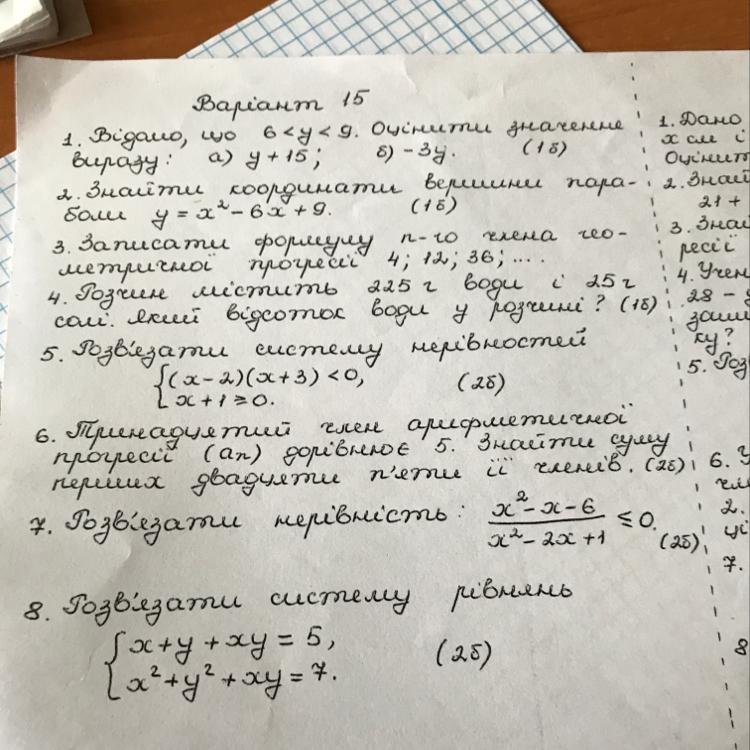 Варіант 15
1. Відомо, що 6 < y < 9. Оцінити значення
виразу: а) y + 15; б) -3y. (1б)
2. Знайти координати вершини пара-
боли y = x² - 6x + 9. (1б)
3. Записати формулу n-го члена гео-
метричної прогресії 4; 12; 36; ....
4. Розчин містить 225 г води і 25 г
солі. Який відсоток води у розчині? (1б)
5. Розв'язати систему нерівностей
{(x-2)(x+3) < 0,
x + 1 ≥ 0. (2б)
6. Тринадцятий член арифметичної
прогресії (an) дорівнює 5. Знайти суму
перших двадцяти п'яти її членів. (2б)
7. Розв'язати нерівність: (x² - x - 6)/(x² - 2x + 1) ≤ 0. (2б)
8. Розв'язати систему рівнянь
{x + y + xy = 5,
x² + y² + xy = 7. (2б)
1. Дано
x см і
Оцінит
2. Знай
21 +
3. Знай
ресії
4. Учен
28 -
заши
ку?
5. Роз
6.
чле
2.
ці
7.
8